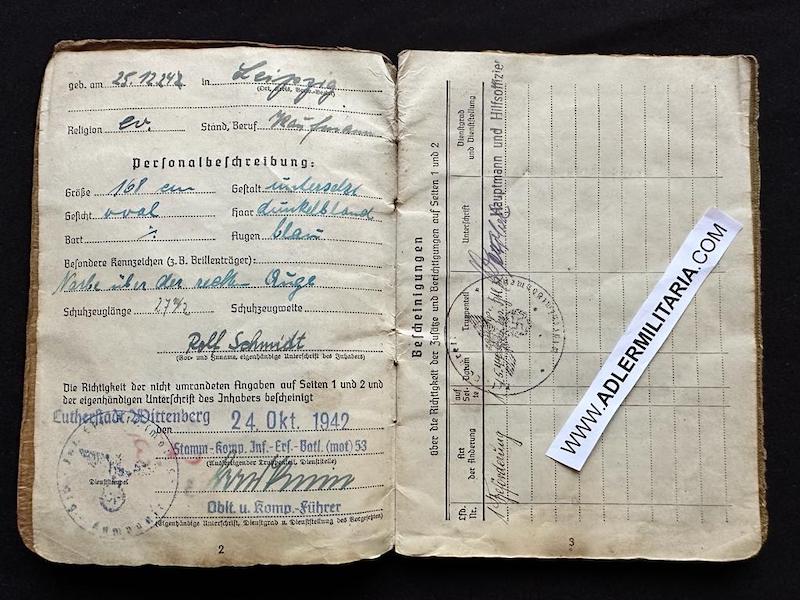 geb. am 25.12. in Leipzig
(Ort, Kreis, Verw.-Bezirk)
Religion ev. Stand, Beruf Kaufmann
Personalbeschreibung:
Größe 168 cm Gestalt untersetzt
Gesicht oval Haar dunkelblond
Bart ./. Augen blau
Besondere Kennzeichen (z.B. Brillenträger):
Narbe über der recht. Auge
Schuhzeuglänge 27½ Schuhzeugweite
Rolf Schmidt
(Vor- und Zuname, eigenhändige Unterschrift des Inhabers)
Die Richtigkeit der nicht umrandeten Angaben auf Seiten 1 und 2 und
der eigenhändigen Unterschrift des Inhabers bescheinigt
Lutherstadt, Wittenberg
den 24. Okt. 1942
Stamm-Komp. Inf.-Ers.-Batl. (mot) 53
(Ausfertigender Truppenteil, Dienststelle)
Dienststempel
Oblt. u. Komp.-Führer
(Eigenhändige Unterschrift, Dienstgrad u. Dienststellung des Vorgesetzten)
2
Bescheinigungen
über die Richtigkeit der Zusätze und Berichtigungen auf Seiten 1 und 2
Lfd. Nr.
Art der Änderung
auf Seite
Datum
Truppenteil
Unterschrift
Dienstgrad und Dienststellung
1 Beförderung
Hauptmann und Hilfsoffizier
3
WWW.ADLERMILITARIA.COM